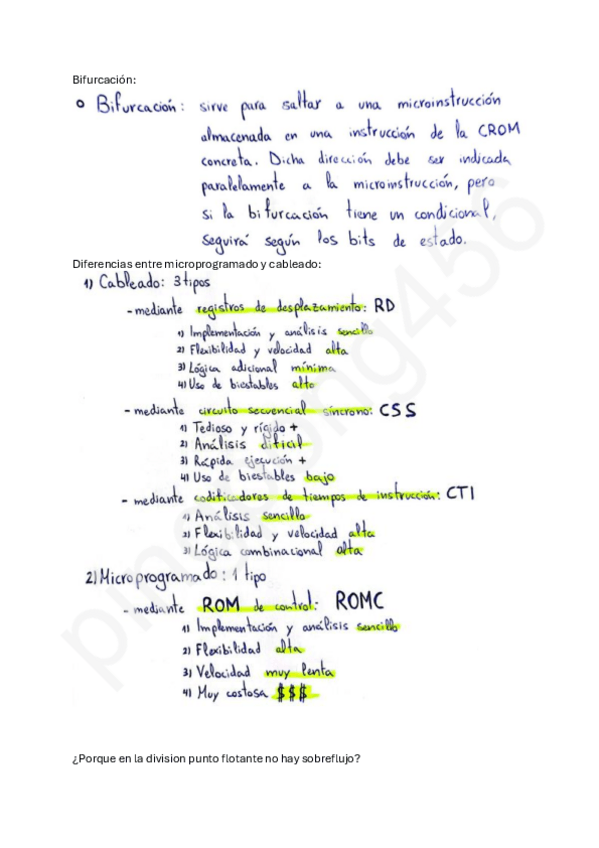 Bifurcación:
o Bifurcación: sirve para saltar a una microinstrucción
almacenada en una instrucción de la CROM
concreta. Dicha dirección debe ser indicada
paralelamente a la microinstrucción, pero
si la bifurcación tiene un condicional,
seguirá según los bits de estado.
Diferencias entre microprogramado y cableado:
1) Cableado: 3 tipos
- mediante registros de desplazamiento: RD
1) Implementación y análisis sencillo
2) Flexibilidad y velocidad alta
3) Lógica adicional mínima
4) Uso de biestables alto
- mediante circuito secuencial síncrono: CSS
1) Tedioso y rígido +
2) Análisis difícil
3) Rápida ejecución +
4) Uso de biestables bajo
- mediante codificadores de tiempos de instrucción: CTI
1) Análisis sencillo
2) Flexibilidad y velocidad alta
3) Lógica combinacional alta
2) Microprogramado: 1 tipo
- mediante ROM de control: ROMC
1) Implementación y análisis sencillo
2) Flexibilidad alta
3) Velocidad muy lenta
4) Muy costosa $$$
¿Porque en la division punto flotante no hay sobreflujo?